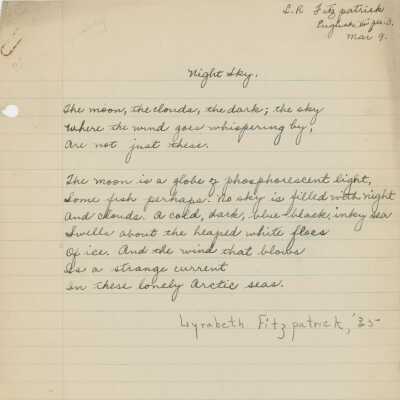 L. R. Fitzpatrick
English
Mar 9.
Night Sky.
The moon, the clouds, the dark; the sky
Where the wind goes whispering by,
Are not just these.
The moon is a globe of phosphorescent light,
Some fish perhaps. No sky is filled with night
And clouds. A cold, dark, blue-black, inky sea
Swells about the heaped white floes
Of ice. And the wind that blows
Is a strange current
In these lonely Arctic seas.
Lyrabeth Fitzpatrick, '35